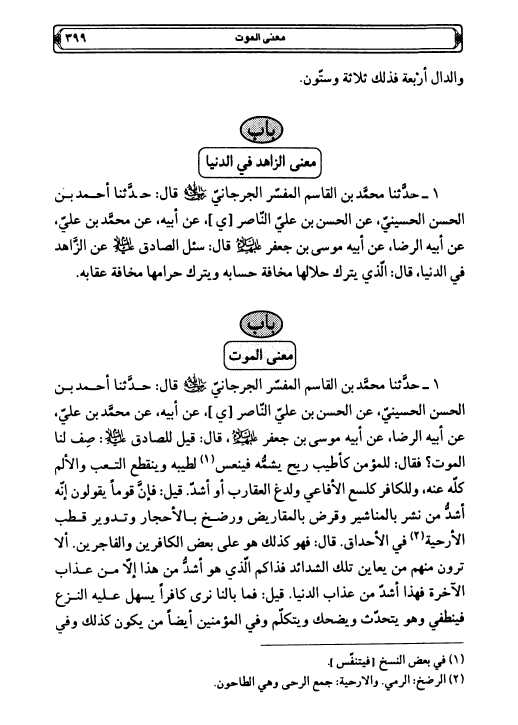 معنى الموت
٣٩٩
والدال أربعة فذلك ثلاثة وستّون.
باب
معنى الزاهد في الدنيا
١ ـ حدَّثنا محمَّد بن القاسم المفسّر الجرجانيّ ﷺ قال: حدَّثنا أحمد بن
الحسن الحسينيّ، عن الحسن بن عليّ النّاصر [ي]، عن أبيه، عن محمّد بن عليّ،
عن أبيه الرضا، عن أبيه موسى بن جعفر عليهم السلام قال: سئل الصادق عليه السلام عن الزَّاهد
في الدنيا، قال: الّذي يترك حلالها مخافة حسابه ويترك حرامها مخافة عقابه.
باب
معنى الموت
١ ـ حدَّثنا محمّد بن القاسم المفسّر الجرجانيّ قال: حدَّثنا أحمد بن
الحسن الحسينيّ، عن الحسن بن عليّ النّاصر [ي]، عن أبيه، عن محمد بن عليّ،
عن أبيه الرضا، عن أبيه موسى بن جعفر عليهم السلام، قال: قيل للصادق عليه السلام: صِف لنا
الموت؟ فقال: للمؤمن كأطيب ريح يشمُّه فينعس(١) لطيبه وينقطع التعب والألم
كلّه عنه، وللكافر كلسع الأفاعي ولدغ العقارب أو أشدّ. قيل: فإنَّ قوماً يقولون إنّه
أشدُّ من نشر بالمناشير وقرض بالمقاريض ورضخ بالأحجار وتدوير قطب
الأرحية(٢) في الأحداق. قال: فهو كذلك هو على بعض الكافرين والفاجرين. ألا
ترون منهم من يعاين تلك الشدائد فذاكم الّذي هو أشدُّ من هذا إلّا من عذاب
الآخرة فهذا أشدّ من عذاب الدنيا. قيل: فما بالنا نرى كافراً يسهل عليه النزع
فينطفي وهو يتحدّث ويضحك ويتكلّم وفي المؤمنين أيضاً من يكون كذلك وفي
(١) في بعض النسخ [فيتنفّس].
(٢) الرضخ: الرمي. والارحية: جمع الرحى وهي الطاحون.